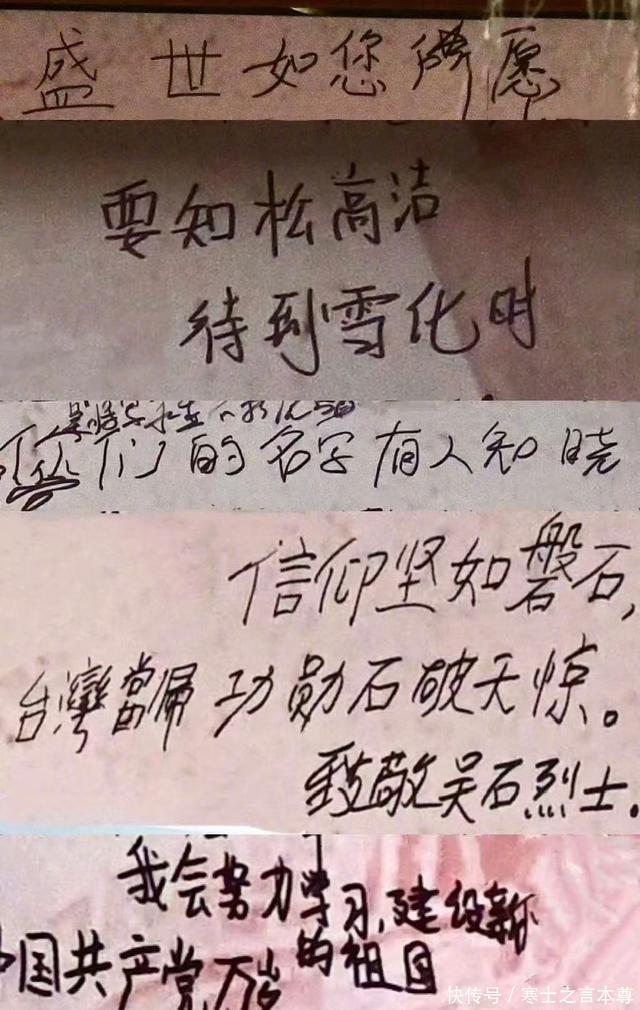 盛世如您所愿
要知松高洁
待到雪化时
你们的名字有人知晓
信仰坚如磐石,
台灣當歸 功勋石破天惊。
致敬吴石烈士.
我会努力学习,建设新
的祖国
中国共产党万岁
快传号/寒士之言本尊